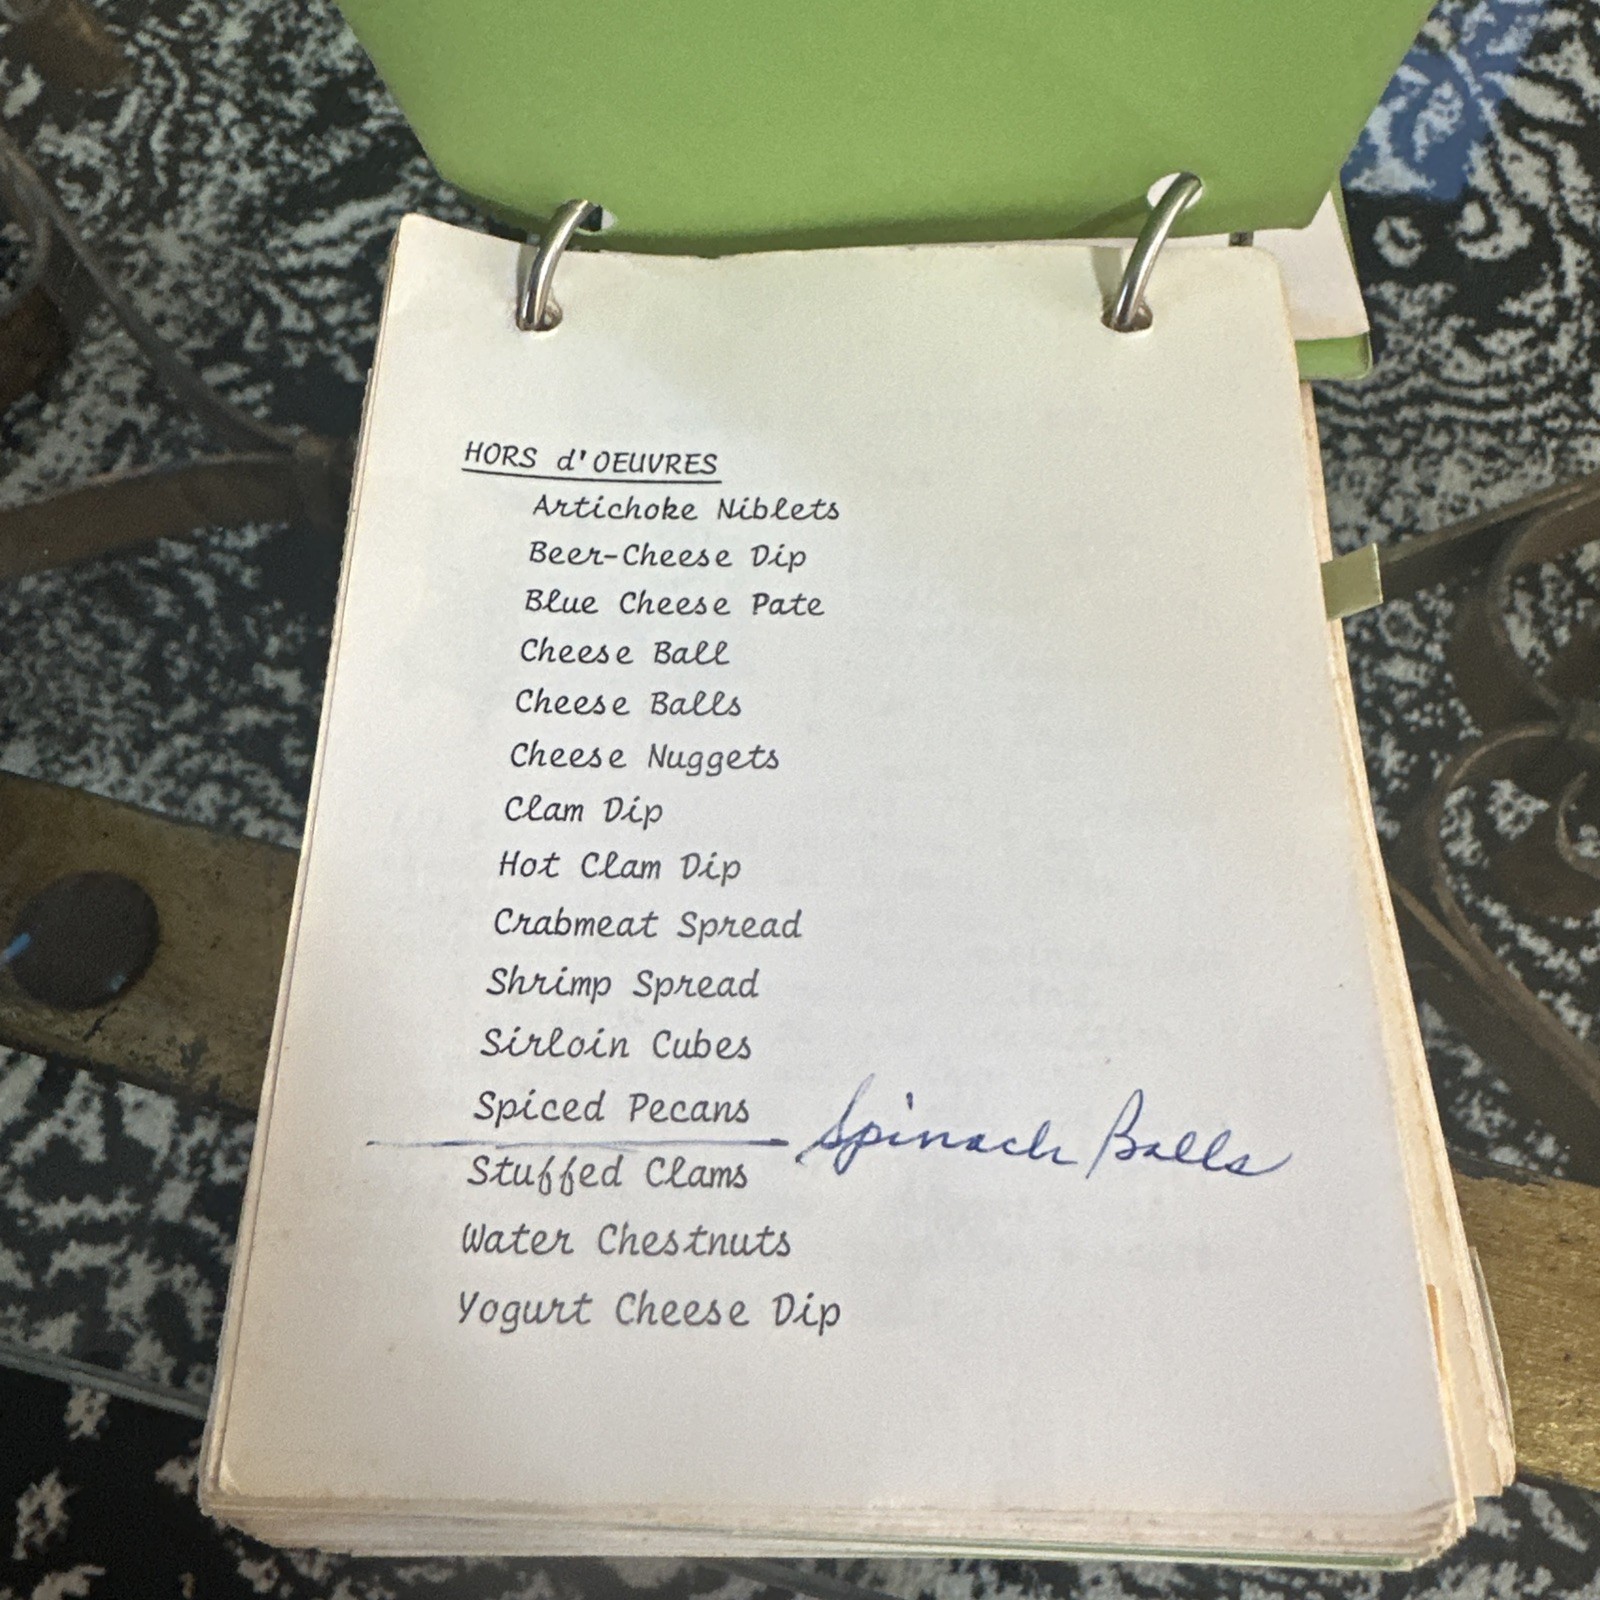 HORS d'OEUVRES
Artichoke Niblets
Beer-Cheese Dip
Blue Cheese Pate
Cheese Ball
Cheese Balls
Cheese Nuggets
Clam Dip
Hot Clam Dip
Crabmeat Spread
Shrimp Spread
Sirloin Cubes
Spiced Pecans
Spinach Balls
Stuffed Clams
Water Chestnuts
Yogurt Cheese Dip